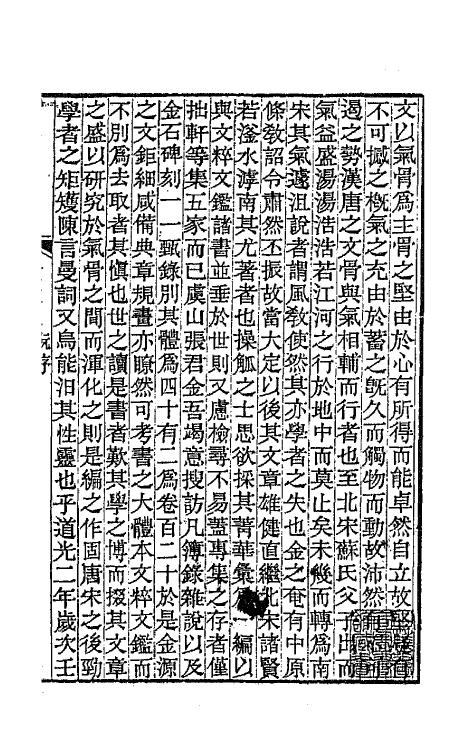 文以氣骨爲主骨之堅由於心有所得而能卓然自立故堅
不可撼之槪氣之充由於蓄之旣久而觸物而動故沛然有
遏之勢漢唐之文骨與氣相輔而行者也至北宋蘇氏父子出而
氣益盛湯湯浩浩若江河之行於地中而莫止矣未幾而轉爲南
宋其氣遽沮說者謂風敎使然其亦學者之失也金之奄有中原
條敎詔令肅然丕振故當大定以後其文章雄健直繼北宋諸賢
若滏水滹南其尤著者也操觚之士思欲採其菁華彙一編以
與文粹文鑑諸書並垂於世則又慮檢尋不易蓋專集之存者僅
拙軒等集五家而已虞山張君金吾竭意搜訪凡簿錄雜說以及
金石碑刻一一甄錄別其體爲四十有二爲卷百二十於是金源
之文鉅細咸備典章規畫亦瞭然可考書之大體本文粹文鑑而
不別爲去取者其愼也世之讀是書者歎其學之博而掇其文章
之盛以硏究於氣骨之間而渾化之則是編之作固唐宋之後勁
學者之矩矱陳言曼詞又烏能汨其性靈也乎道光二年歲次壬
阮序